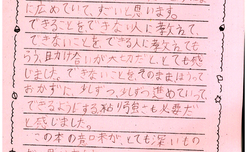 に広めていて、すごいと思います。
できることをできない人に教えて、
できないことを、できる人に教えても
らう、助け合いが大切だ、ととても感
じました。できないことを、そのままほうって
おかずに、少しずつ、少しずつ進めていって
できるようにするねばり強さも必要だ
と感じました。
この本の
が、とても深いもの